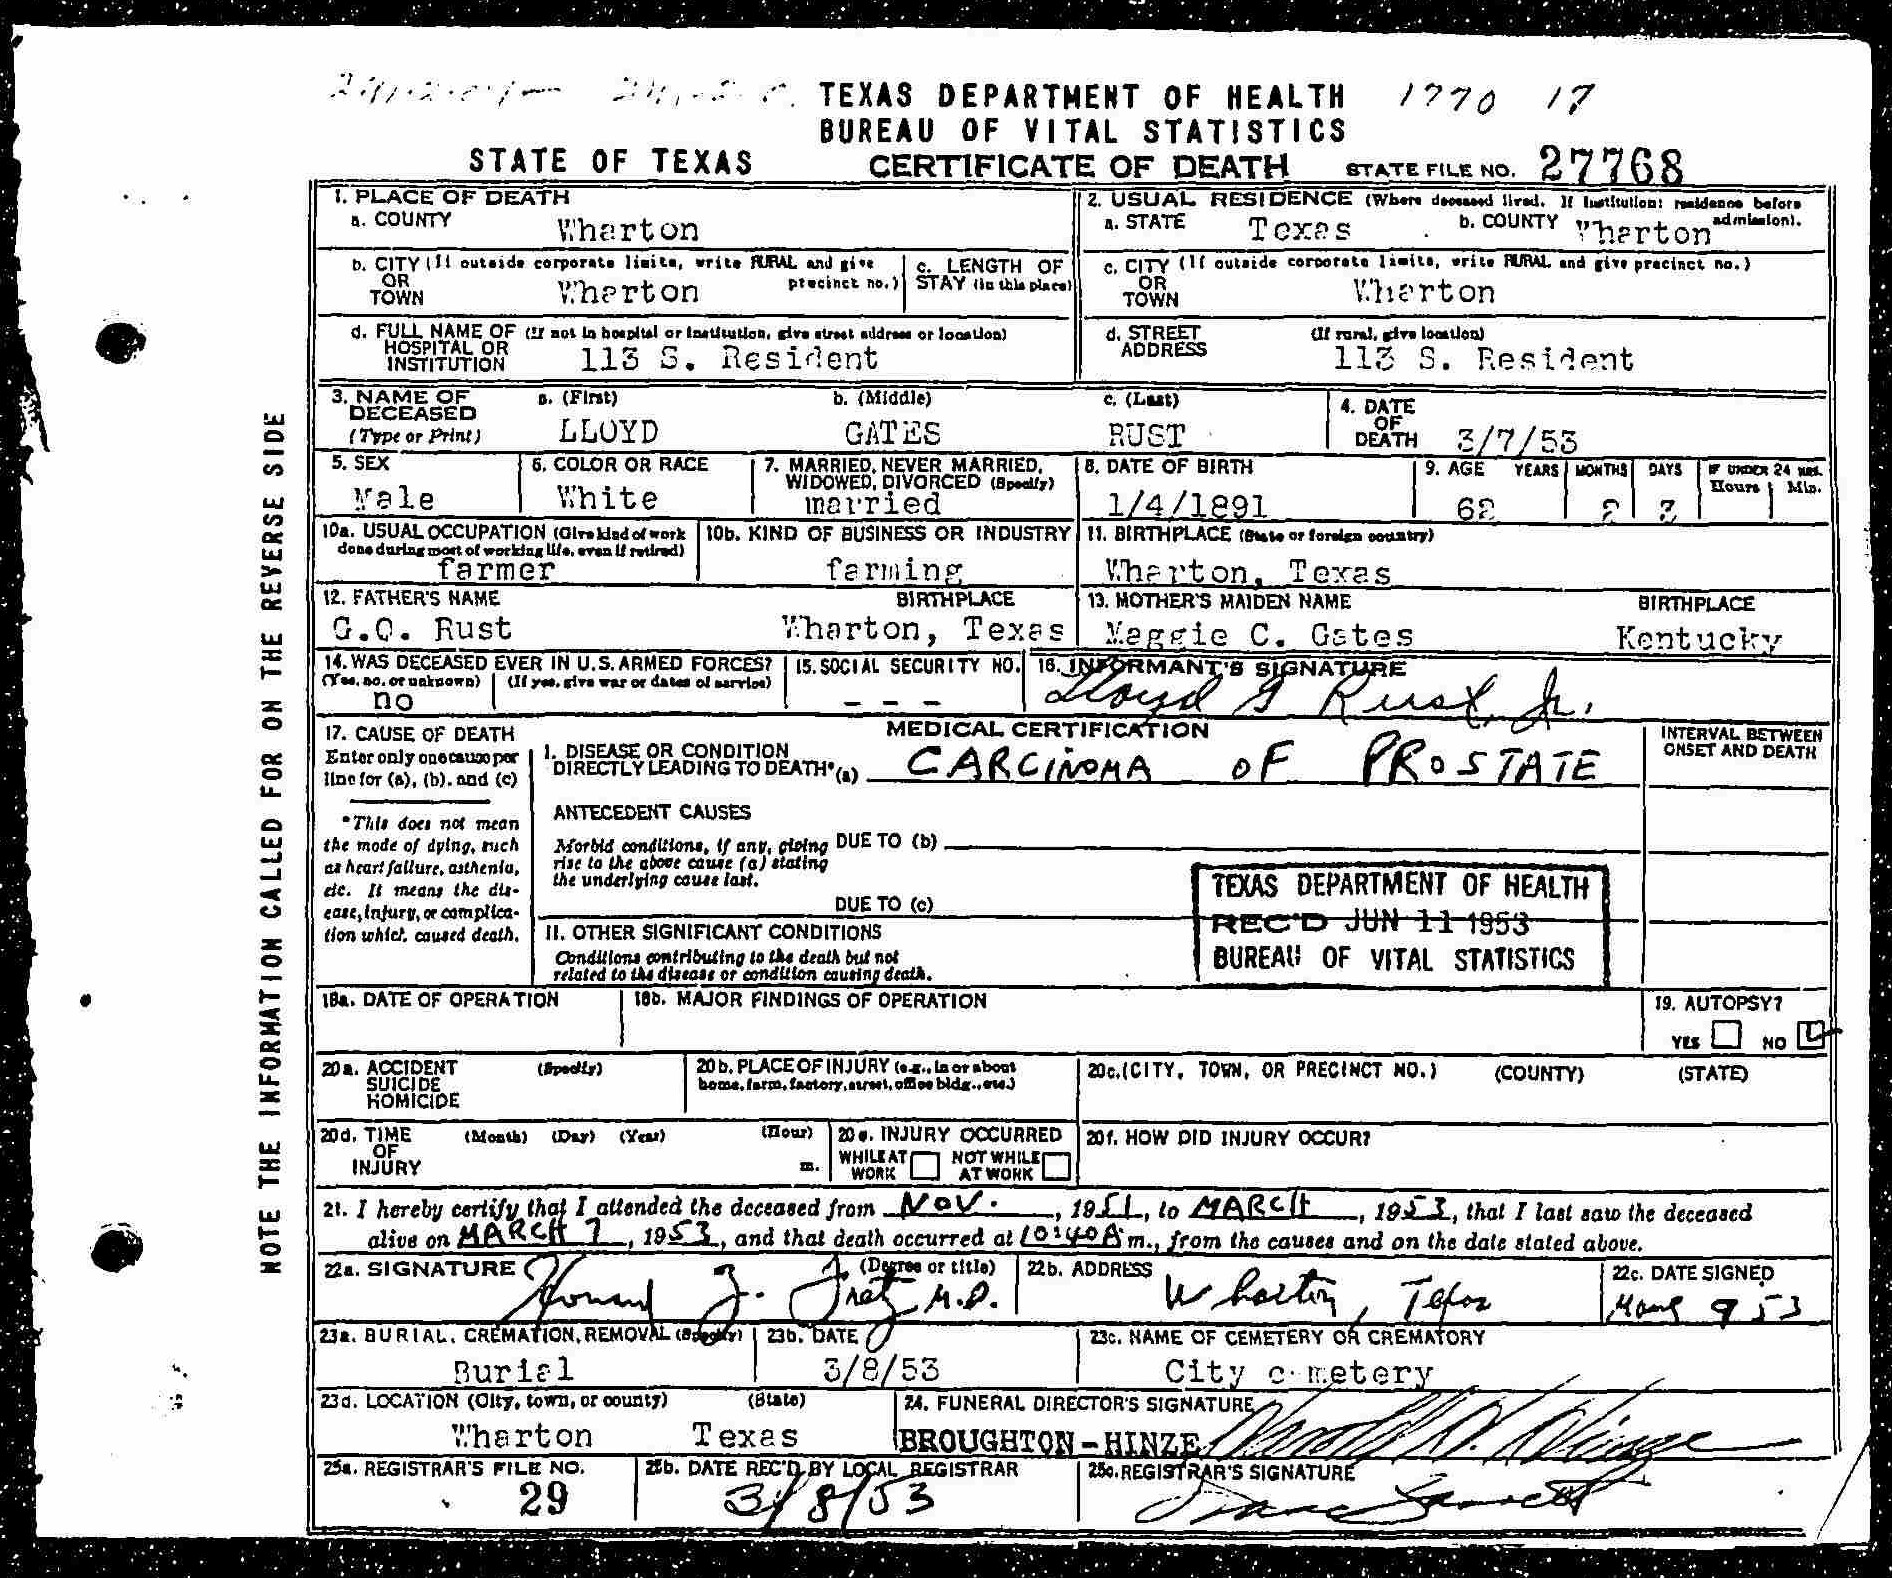 TEXAS DEPARTMENT OF HEALTH 1770 17
BUREAU OF VITAL STATISTICS
STATE OF TEXAS CERTIFICATE OF DEATH STATE FILE NO. 27768
NOTE THE INFORMATION CALLED FOR ON THE REVERSE SIDE
1. PLACE OF DEATH
a. COUNTY Wharton
2. USUAL RESIDENCE (Where deceased lived. If institution: residence before admission).
a. STATE Texas b. COUNTY Wharton
b. CITY (If outside corporate limits, write RURAL and give precinct no.)
OR
TOWN Wharton
c. LENGTH OF
STAY (in this place)
c. CITY (If outside corporate limits, write RURAL and give precinct no.)
OR
TOWN Wharton
d. FULL NAME OF (If not in hospital or institution, give street address or location)
HOSPITAL OR
INSTITUTION 113 S. Resident
d. STREET (If rural, give location)
ADDRESS 113 S. Resident
3. NAME OF DECEASED (Type or Print)
a. (First) LLOYD
b. (Middle) GATES
c. (Last) RUST
4. DATE OF DEATH 3/7/53
5. SEX Male
6. COLOR OR RACE White
7. MARRIED, NEVER MARRIED, WIDOWED, DIVORCED (Specify) married
8. DATE OF BIRTH 1/4/1891
9. AGE YEARS 62 MONTHS 2 DAYS 3 IF UNDER 24 HRS. Hours Min.
10a. USUAL OCCUPATION (Give kind of work done during most of working life, even if retired) farmer
10b. KIND OF BUSINESS OR INDUSTRY farming
11. BIRTHPLACE (State or foreign country) Wharton, Texas
12. FATHER'S NAME BIRTHPLACE
G.C. Rust Wharton, Texas
13. MOTHER'S MAIDEN NAME BIRTHPLACE
Maggie C. Gates Kentucky
14. WAS DECEASED EVER IN U.S. ARMED FORCES?
(Yes, no, or unknown) (If yes, give war or dates of service)
no
15. SOCIAL SECURITY NO.
- - -
16. INFORMANT'S SIGNATURE
Lloyd G Rust, Jr.
17. CAUSE OF DEATH
Enter only one cause per line for (a), (b), and (c)
*This does not mean the mode of dying, such as heart failure, asthenia, etc. It means the disease, injury, or complication which caused death.
MEDICAL CERTIFICATION
INTERVAL BETWEEN ONSET AND DEATH
I. DISEASE OR CONDITION
DIRECTLY LEADING TO DEATH*(a) CARCINOMA OF PROSTATE
ANTECEDENT CAUSES
Morbid conditions, if any, giving rise to the above cause (a) stating the underlying cause last.
DUE TO (b)
DUE TO (c)
TEXAS DEPARTMENT OF HEALTH
REC'D JUN 11 1953
BUREAU OF VITAL STATISTICS
II. OTHER SIGNIFICANT CONDITIONS
Conditions contributing to the death but not related to the disease or condition causing death.
18a. DATE OF OPERATION
18b. MAJOR FINDINGS OF OPERATION
19. AUTOPSY?
YES NO
20a. ACCIDENT (Specify)
SUICIDE
HOMICIDE
20b. PLACE OF INJURY (e.g., in or about home, farm, factory, street, office bldg., etc.)
20c. (CITY, TOWN, OR PRECINCT NO.) (COUNTY) (STATE)
20d. TIME OF INJURY (Month) (Day) (Year) (Hour) m.
20e. INJURY OCCURRED
WHILE AT WORK NOT WHILE AT WORK
20f. HOW DID INJURY OCCUR?
21. I hereby certify that I attended the deceased from NOV. , 1951, to MARCH , 1953, that I last saw the deceased
alive on MARCH 7, 1953, and that death occurred at 10:40A m., from the causes and on the date stated above.
22a. SIGNATURE (Degree or title) M.D.
22b. ADDRESS Wharton, Texas
22c. DATE SIGNED 9 53
23a. BURIAL, CREMATION, REMOVAL (Specify) Burial
23b. DATE 3/8/53
23c. NAME OF CEMETERY OR CREMATORY City cemetery
23d. LOCATION (City, town, or county) (State)
Wharton Texas
24. FUNERAL DIRECTOR'S SIGNATURE
BROUGHTON-HINZE
25a. REGISTRAR'S FILE NO. 29
25b. DATE REC'D BY LOCAL REGISTRAR 3/8/53
25c. REGISTRAR'S SIGNATURE